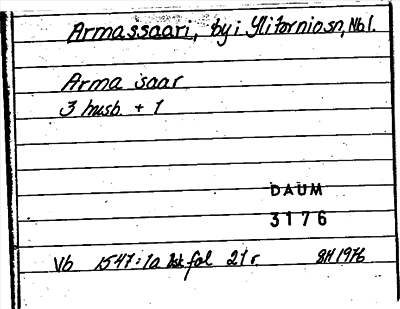 Armassaari, by i Ylitornio sn, Nbl.
Arma saar
3 husb. + 1
DAUM
3176
Vb 1547:1a fol 21 r. BH 1976